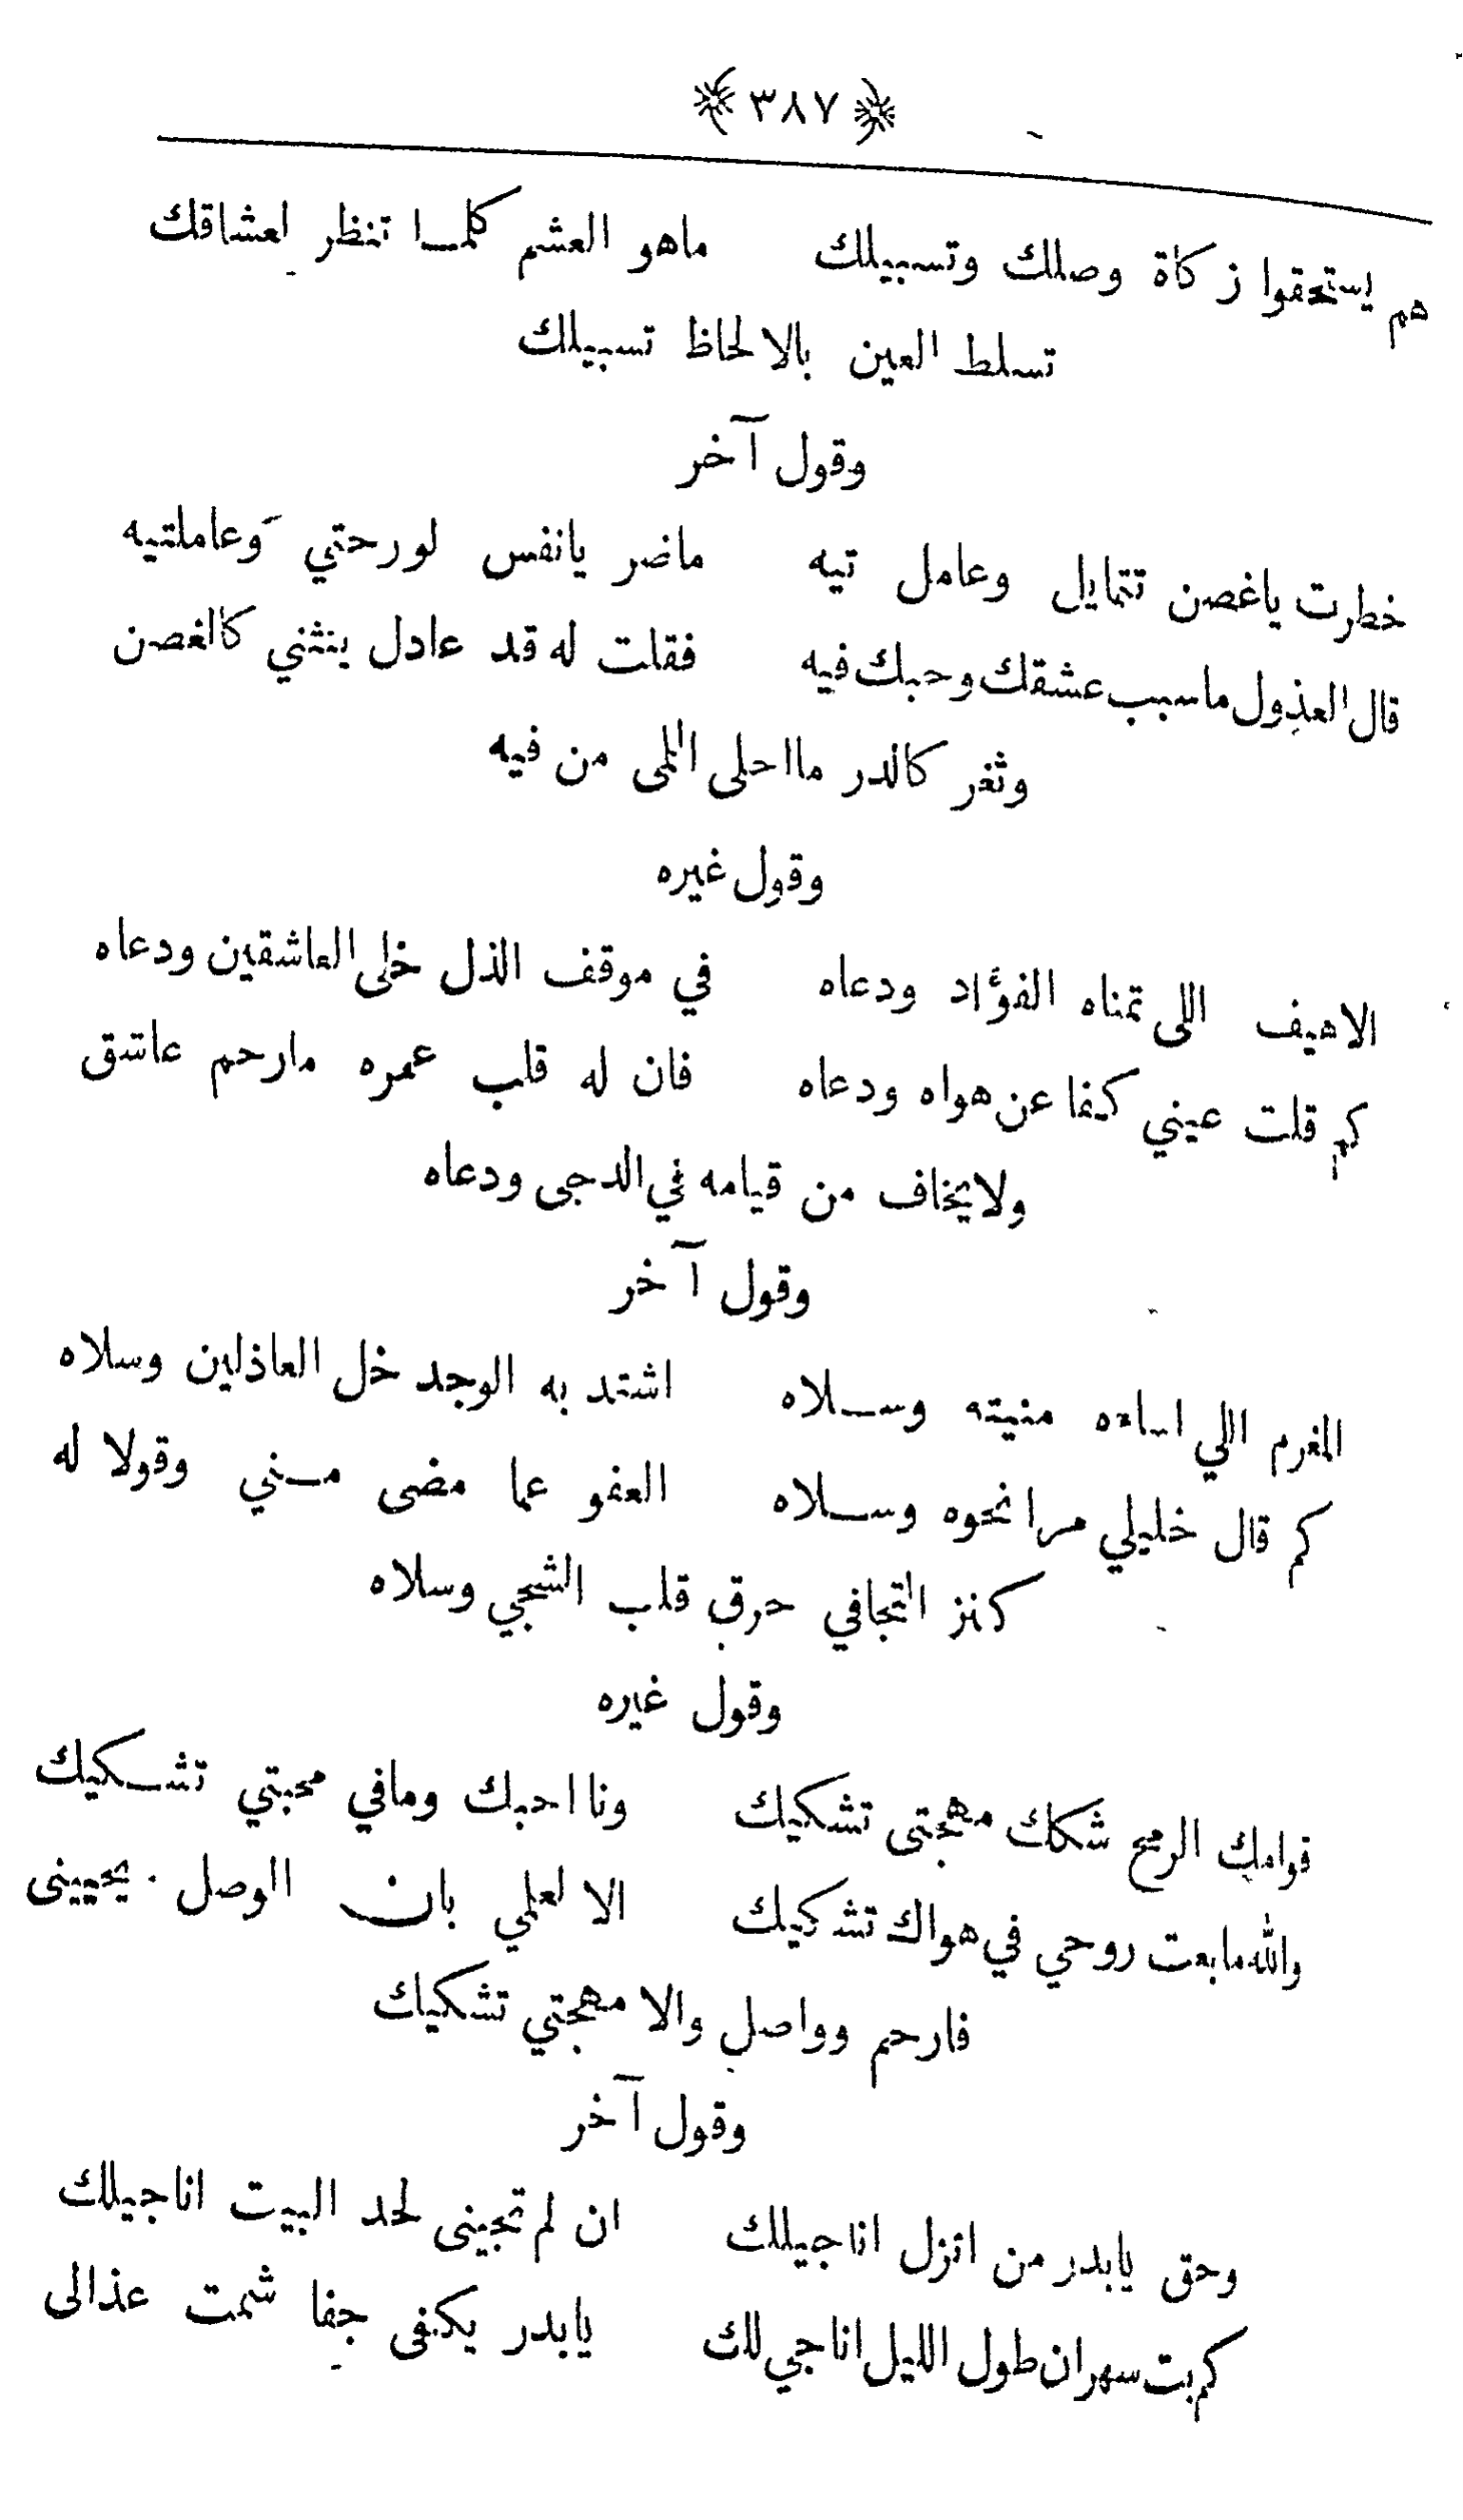 ﴿٣٨٧﴾
هم يستحقوا زكاة وصلك وتسبيلك ماهو العشم كلما تنظر لعشاقك
تسلط العين بالالحاظ تسبيلك
وقول آخر
خطرت ياغصن تتمايل وعامل تيه ماضر يانفس لورحتي وعاملتيه
قال العذول ماسبب عشقك وحبك فيه فقلت له قد عادل ينثني كالغصن
وثغر كالدر مااحلى اللمى من فيه
وقول غيره
الاهيف اللى تمناه الفؤاد ودعاه في موقف الذل خلى العاشقين ودعاه
كم قلت عيني كفا عن هواه ودعاه فان له قلب عمره مارحم عاشق
ولا يخاف من قيامه في الدجى ودعاه
وقول آخر
المغرم اللي منيته وسلاه اشتد به الوجد خل العاذلين وسلاه
كم قال خليلي مرا نحوه وسلاه العفو عما مضى مني وقولا له
كنز التجافي حرق قلب الشجي وسلاه
وقول غيره
قوامك الرمح شكك مهجتى تشكيك ونا احبك ومافي محبتي تشكيك
والله مابعت روحي في هواك تشكيك الا لعلمي بان الوصل يحيينى
فارحم وواصل والا مهجتي تشكيك
وقول آخر
وحق يابدر من انزل اناجيلك ان لم تجينى لحد البيت اناجيلك
كم بت سهران طول الليل اناجي لك يابدر يكفى جفا شمت عذالى